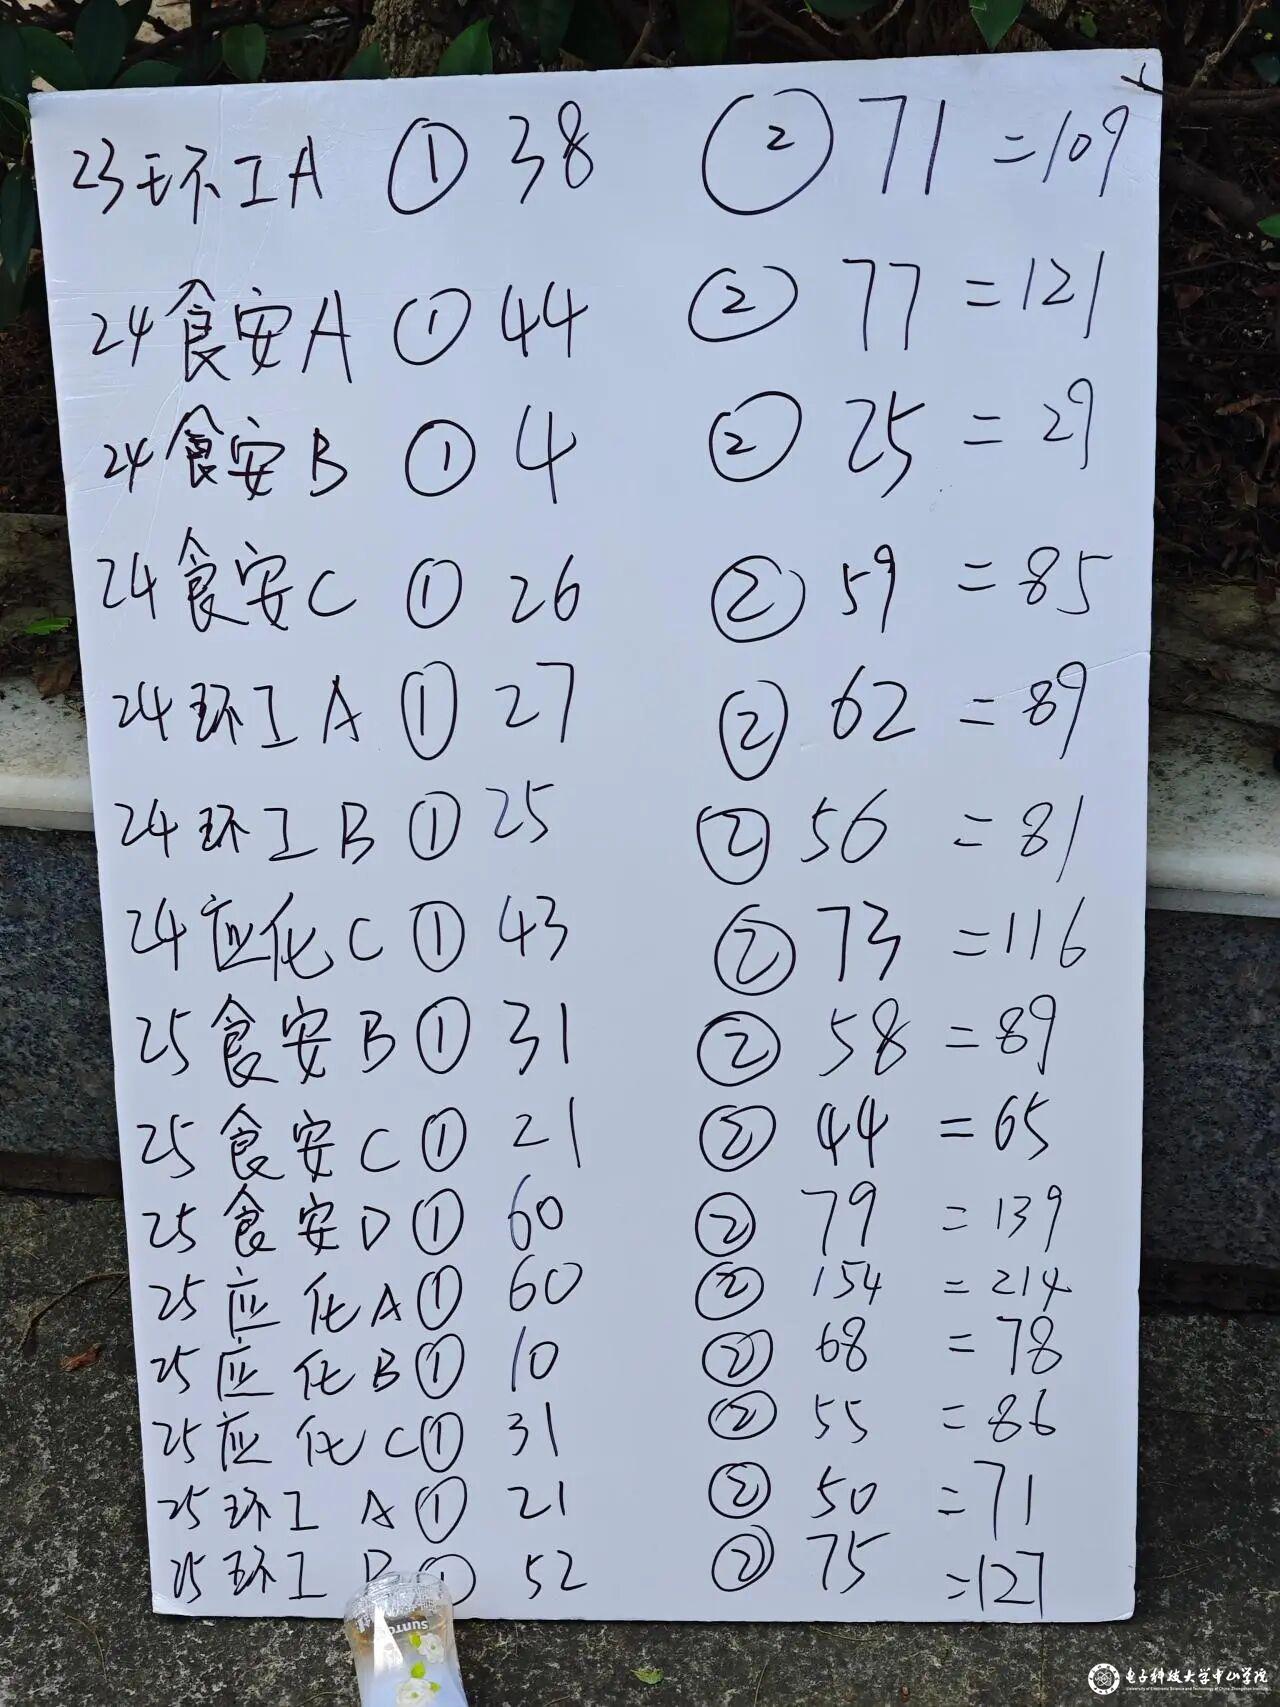 23环工A ① 38 ② 71 =109
24食安A ① 44 ② 77 =121
24食安B ① 4 ② 25 = 29
24食安C ① 26 ② 59 = 85
24环工A ① 27 ② 62 = 89
24环工B ① 25 ② 56 = 81
24应化C ① 43 ② 73 =116
25食安B ① 31 ② 58 = 89
25食安C ① 21 ② 44 = 65
25食安D ① 60 ② 79 = 139
25应化A ① 60 ② 154 = 214
25应化B ① 10 ② 68 = 78
25应化C ① 31 ② 55 = 86
25环工A ① 21 ② 50 = 71
25环工B ① 52 ② 75 =127
SUNTORY
电子科技大学中山学院
University of Electronic Science and Technology of China, Zhongshan Institute